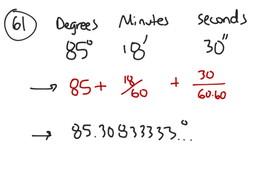 61 Degrees Minutes seconds
85° 18' 30"
→ 85 + 18/60 + 30/60.60
→ 85.30833333...°